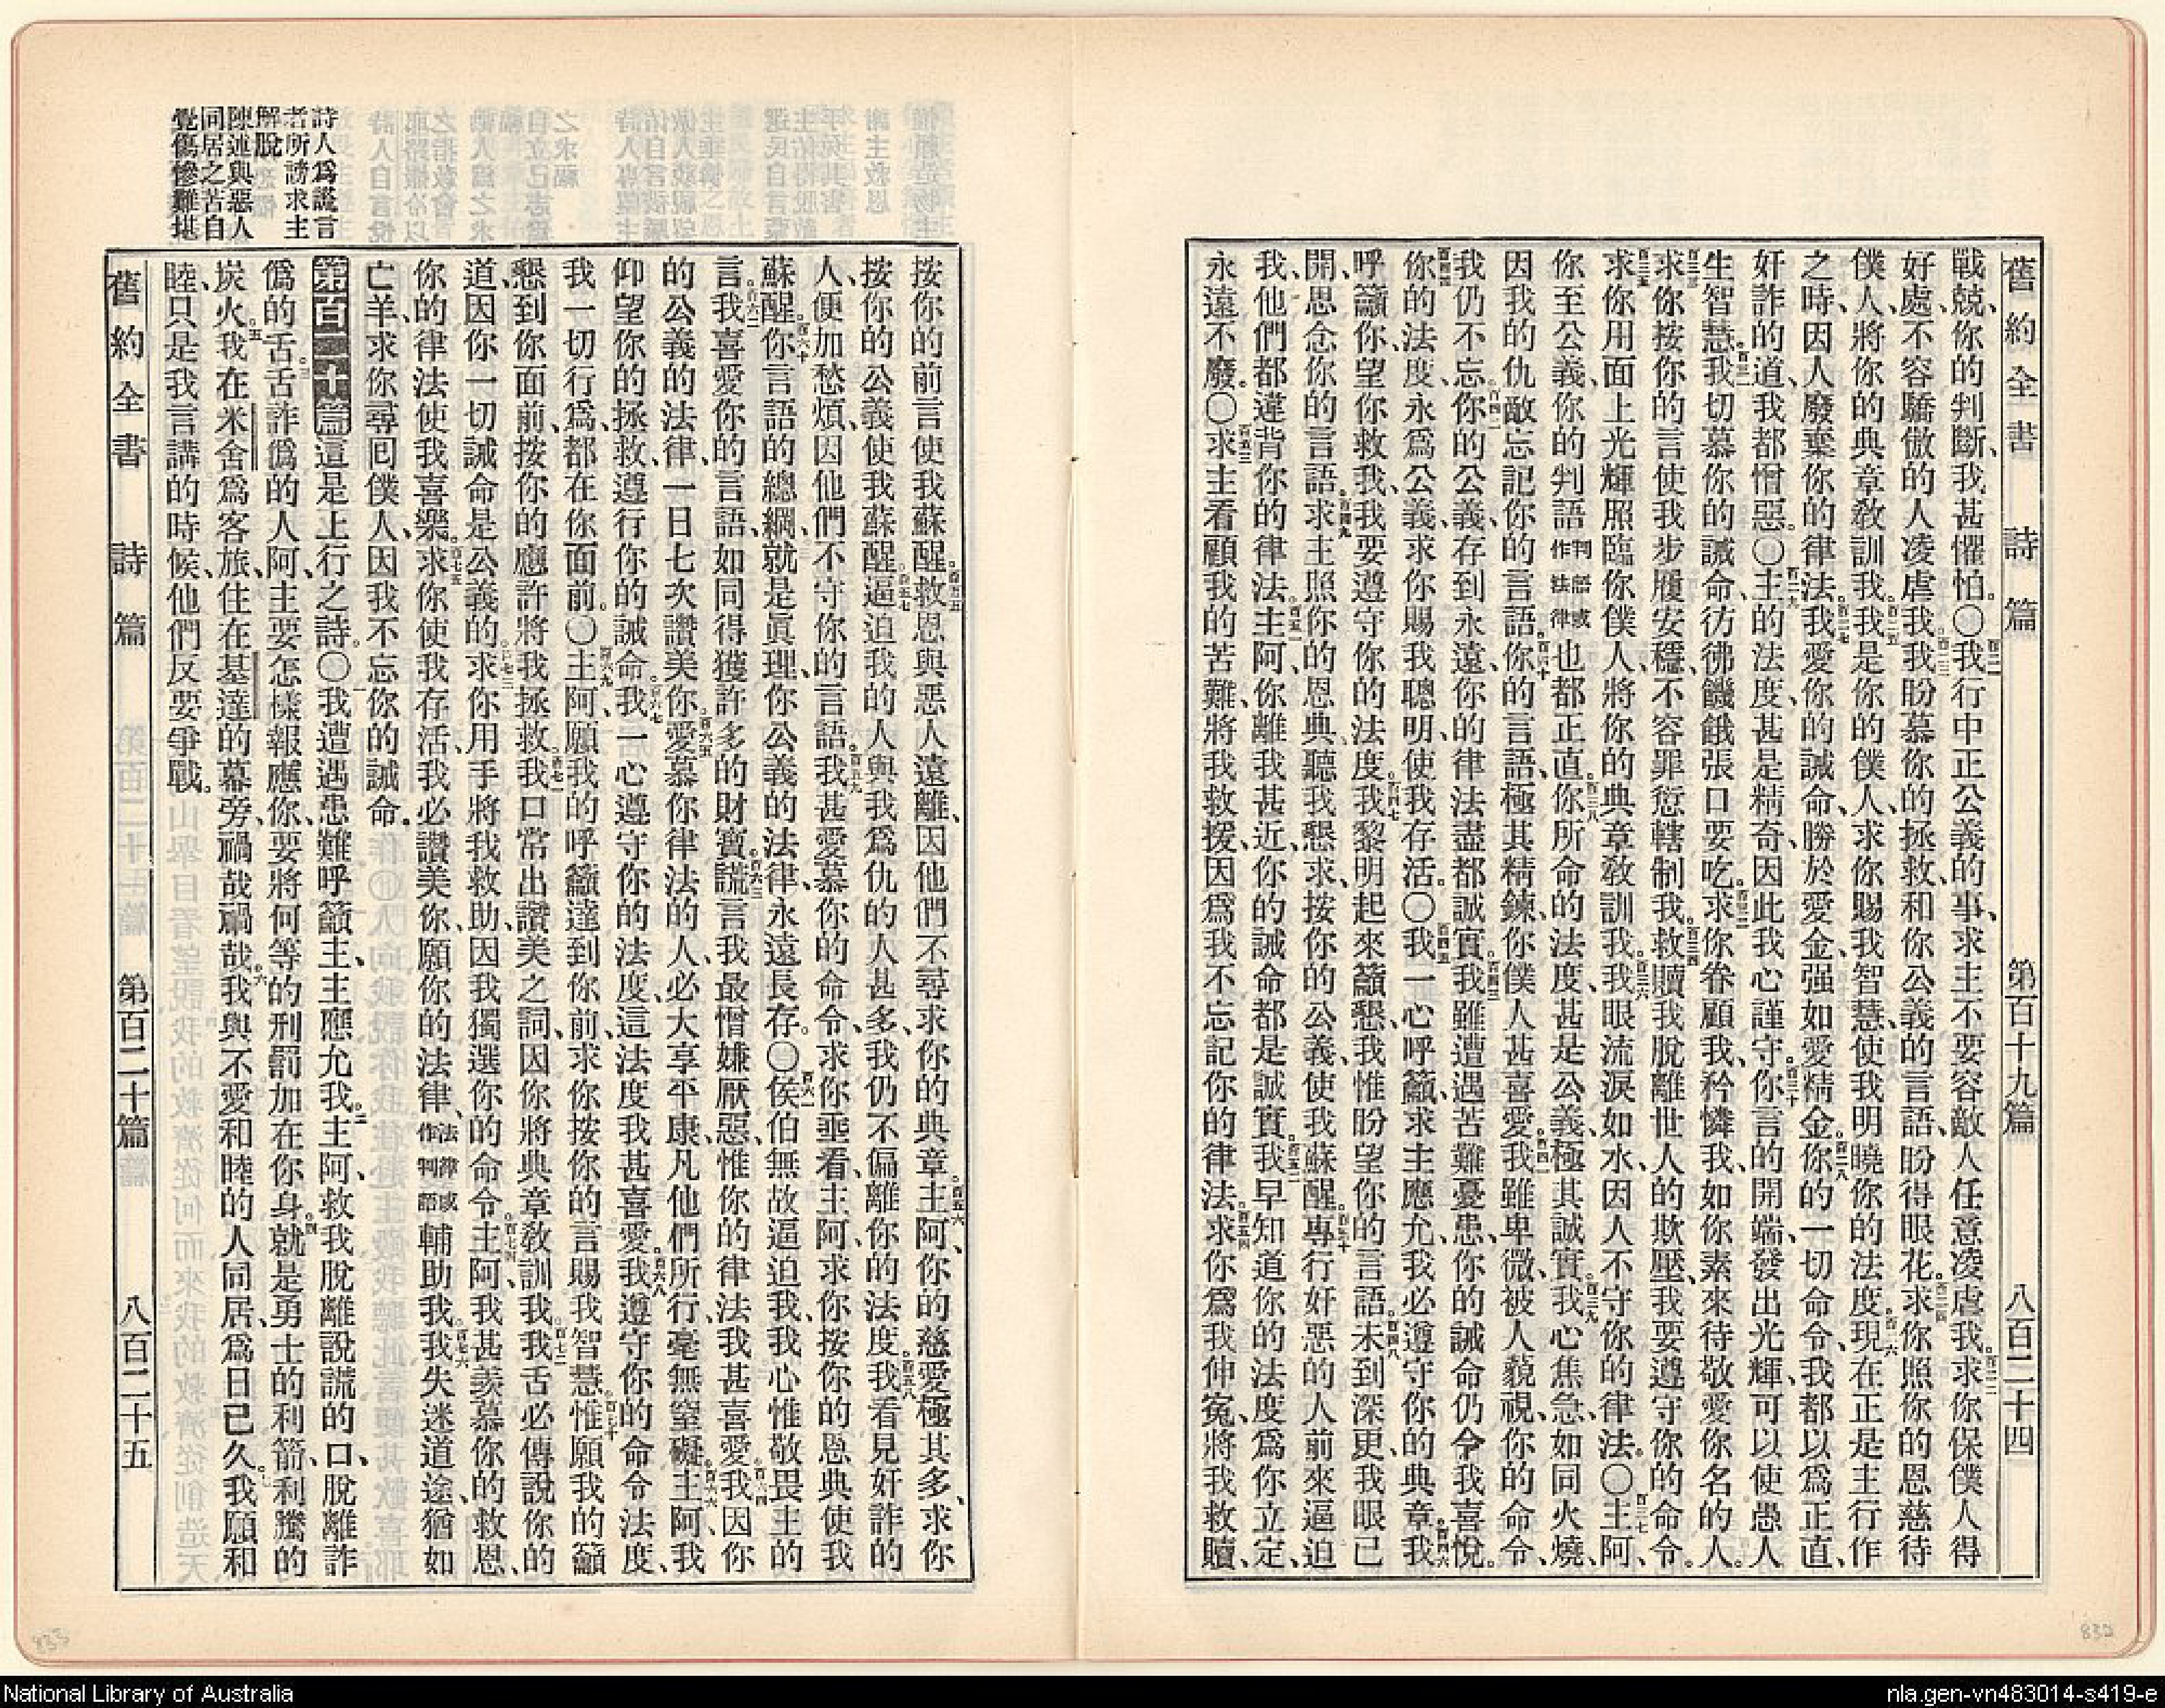 舊約全書 詩篇 第百十九篇 八百二十四
戰兢、你的判斷、我甚懼怕。〇百二一我行中正公義的事、求主不要容敵人任意凌虐我。百二二求你保僕人得
好處、不容驕傲的人凌虐我。百二三我盼慕你的拯救、和你公義的言語、盼得眼花。百二四求你照你的恩慈待
僕人、將你的典章教訓我。百二五我是你的僕人、求你賜我智慧、使我明曉你的法度。百二六現在正是主行作
之時、因人廢棄你的律法。百二七我愛你的誡命、勝於愛金强如愛精金。百二八你的一切命令、我都以爲正直、
奸詐的道、我都憎惡。〇百二九主的法度、甚是精奇因此我心謹守。百三十你言的開端、發出光輝、可以使愚人
生智慧。百三一我切慕你的誡命、彷彿饑餓張口要吃。百三二求你眷顧我、矜憐我、如你素來待敬愛你名的人。
百三三求你按你的言使我步履安穩、不容罪愆轄制我。百三四救贖我脫離世人的欺壓、我要遵守你的命令。
百三五求你用面上光輝照臨你僕人、將你的典章教訓我。百三六我眼流淚如水、因人不守你的律法。〇百三七主阿、
你至公義、你的判語判語或作法律也都正直。百三八你所命的法度、甚是公義、極其誠實。百三九我心焦急、如同火燒、
因我的仇敵忘記你的言語。百四十你的言語、極其精鍊、你僕人甚喜愛。百四一我雖卑微、被人藐視、你的命令、
我仍不忘。百四二你的公義、存到永遠、你的律法盡都誠實。百四三我雖遭遇苦難憂患、你的誡命仍令我喜悅。
百四四你的法度、永爲公義、求你賜我聰明、使我存活。〇百四五我一心呼籲、求主應允、我必遵守你的典章。百四六我
呼籲你、望你救我、我要遵守你的法度。百四七我黎明起來籲懇、我惟盼望你的言語。百四八未到深更、我眼已
開、思念你的言語。百四九求主照你的恩典、聽我懇求、按你的公義、使我蘇醒。百五十專行奸惡的人前來逼迫
我、他們都違背你的律法。百五一主阿、你離我甚近、你的誡命都是誠實。百五二我早知道你的法度爲你立定、
永遠不廢。〇百五三求主看顧我的苦難、將我救援、因爲我不忘記你的律法。百五四求你爲我伸寃、將我救贖、
按你的前言使我蘇醒。百五五救恩與惡人遠離、因他們不尋求你的典章。百五六主阿、你的慈愛極其多、求你
按你的公義使我蘇醒。百五七逼迫我的人與我爲仇的人甚多、我仍不偏離你的法度。百五八我看見奸詐的
人、便加愁煩、因他們不守你的言語。百五九我甚愛慕你的命令、求你垂看、主阿求你按你的恩典使我
蘇醒。百六十你言語的總綱、就是眞理、你公義的法律、永遠長存。〇百六一侯伯無故逼迫我、我心惟敬畏主的
言。百六二我喜愛你的言語、如同得獲許多的財寶。百六三謊言我最憎嫌厭惡、惟你的律法我甚喜愛。百六四我因你
的公義的法律、一日七次讚美你。百六五愛慕你律法的人、必大享平康、凡他們所行、毫無窒礙。百六六主阿、我
仰望你的拯救、遵行你的誡命。百六七我一心遵守你的法度、這法度我甚喜愛。百六八我遵守你的命令法度、
我一切行爲、都在你面前。〇百六九主阿、願我的呼籲達到你前、求你按你的言賜我智慧。百七十惟願我的籲
懇到你面前、按你的應許將我拯救。百七一我口常出讚美之詞、因你將典章教訓我。百七二我舌必傳說你的
道、因你一切誡命是公義的。百七三求你用手將我救助、因我獨選你的命令。百七四主阿、我甚羨慕你的救恩、
你的律法使我喜樂。百七五求你使我存活、我必讚美你、願你的法律、法律或作判語輔助我。百七六我失迷道途、猶如
亡羊、求你尋回僕人、因我不忘你的誡命。
第百二十篇這是上行之詩。〇一我遭遇患難、呼籲主、主應允我。二主阿、救我脫離說謊的口、脫離詐
僞的舌。三舌詐僞的人阿、主要怎樣報應你、要將何等的刑罰加在你身。四就是勇士的利箭、利騰的
炭火。五我在米舍爲客旅、住在基達的幕旁、禍哉禍哉。六我與不愛和睦的人同居、爲日已久。七我願和
睦、只是我言講的時候、他們反要爭戰。
舊約全書 詩篇 第百二十篇 八百二十五
詩人爲謊言
者所謗求主
解脫
陳述與惡人
同居之苦自
覺傷慘難堪
833
832
National Library of Australia
nla.gen-vn483014-s419-e